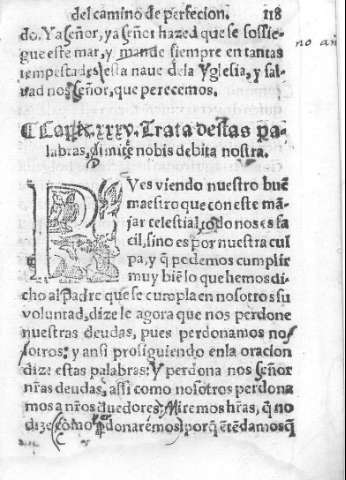 del camino de perfecion. 118
do. Ya señor, ya señor hazed que se sossie-
gue este mar, y mande siempre en tantas
tempestades esta naue dela Yglesia, y sal-
uad nos señor, que perecemos.
no
¶ Cap. xxxv. Trata destas pa-
labras, dimitte nobis debita nostra.
PVes viendo nuestro buē
maestro que con este mā-
jar celestial todo nos es fa
cil, sino es por nuestra cul
pa, y q̄ podemos cumplir
muy biē lo que hemos di-
cho al padre que se cumpla en nosotros su
voluntad, dize le agora que nos perdone
nuestras deudas, pues perdonamos nos
sotros: y ansi prosiguiendo enla oracion
dize estas palabras: Y perdona nos señor
nr̄as deudas, assi como nosotros perdona
mos a nr̄os duedores. Miremos hr̄as, q̄ no
dize como ꝑdonarēmos: porq̄ ētēdamos q̄